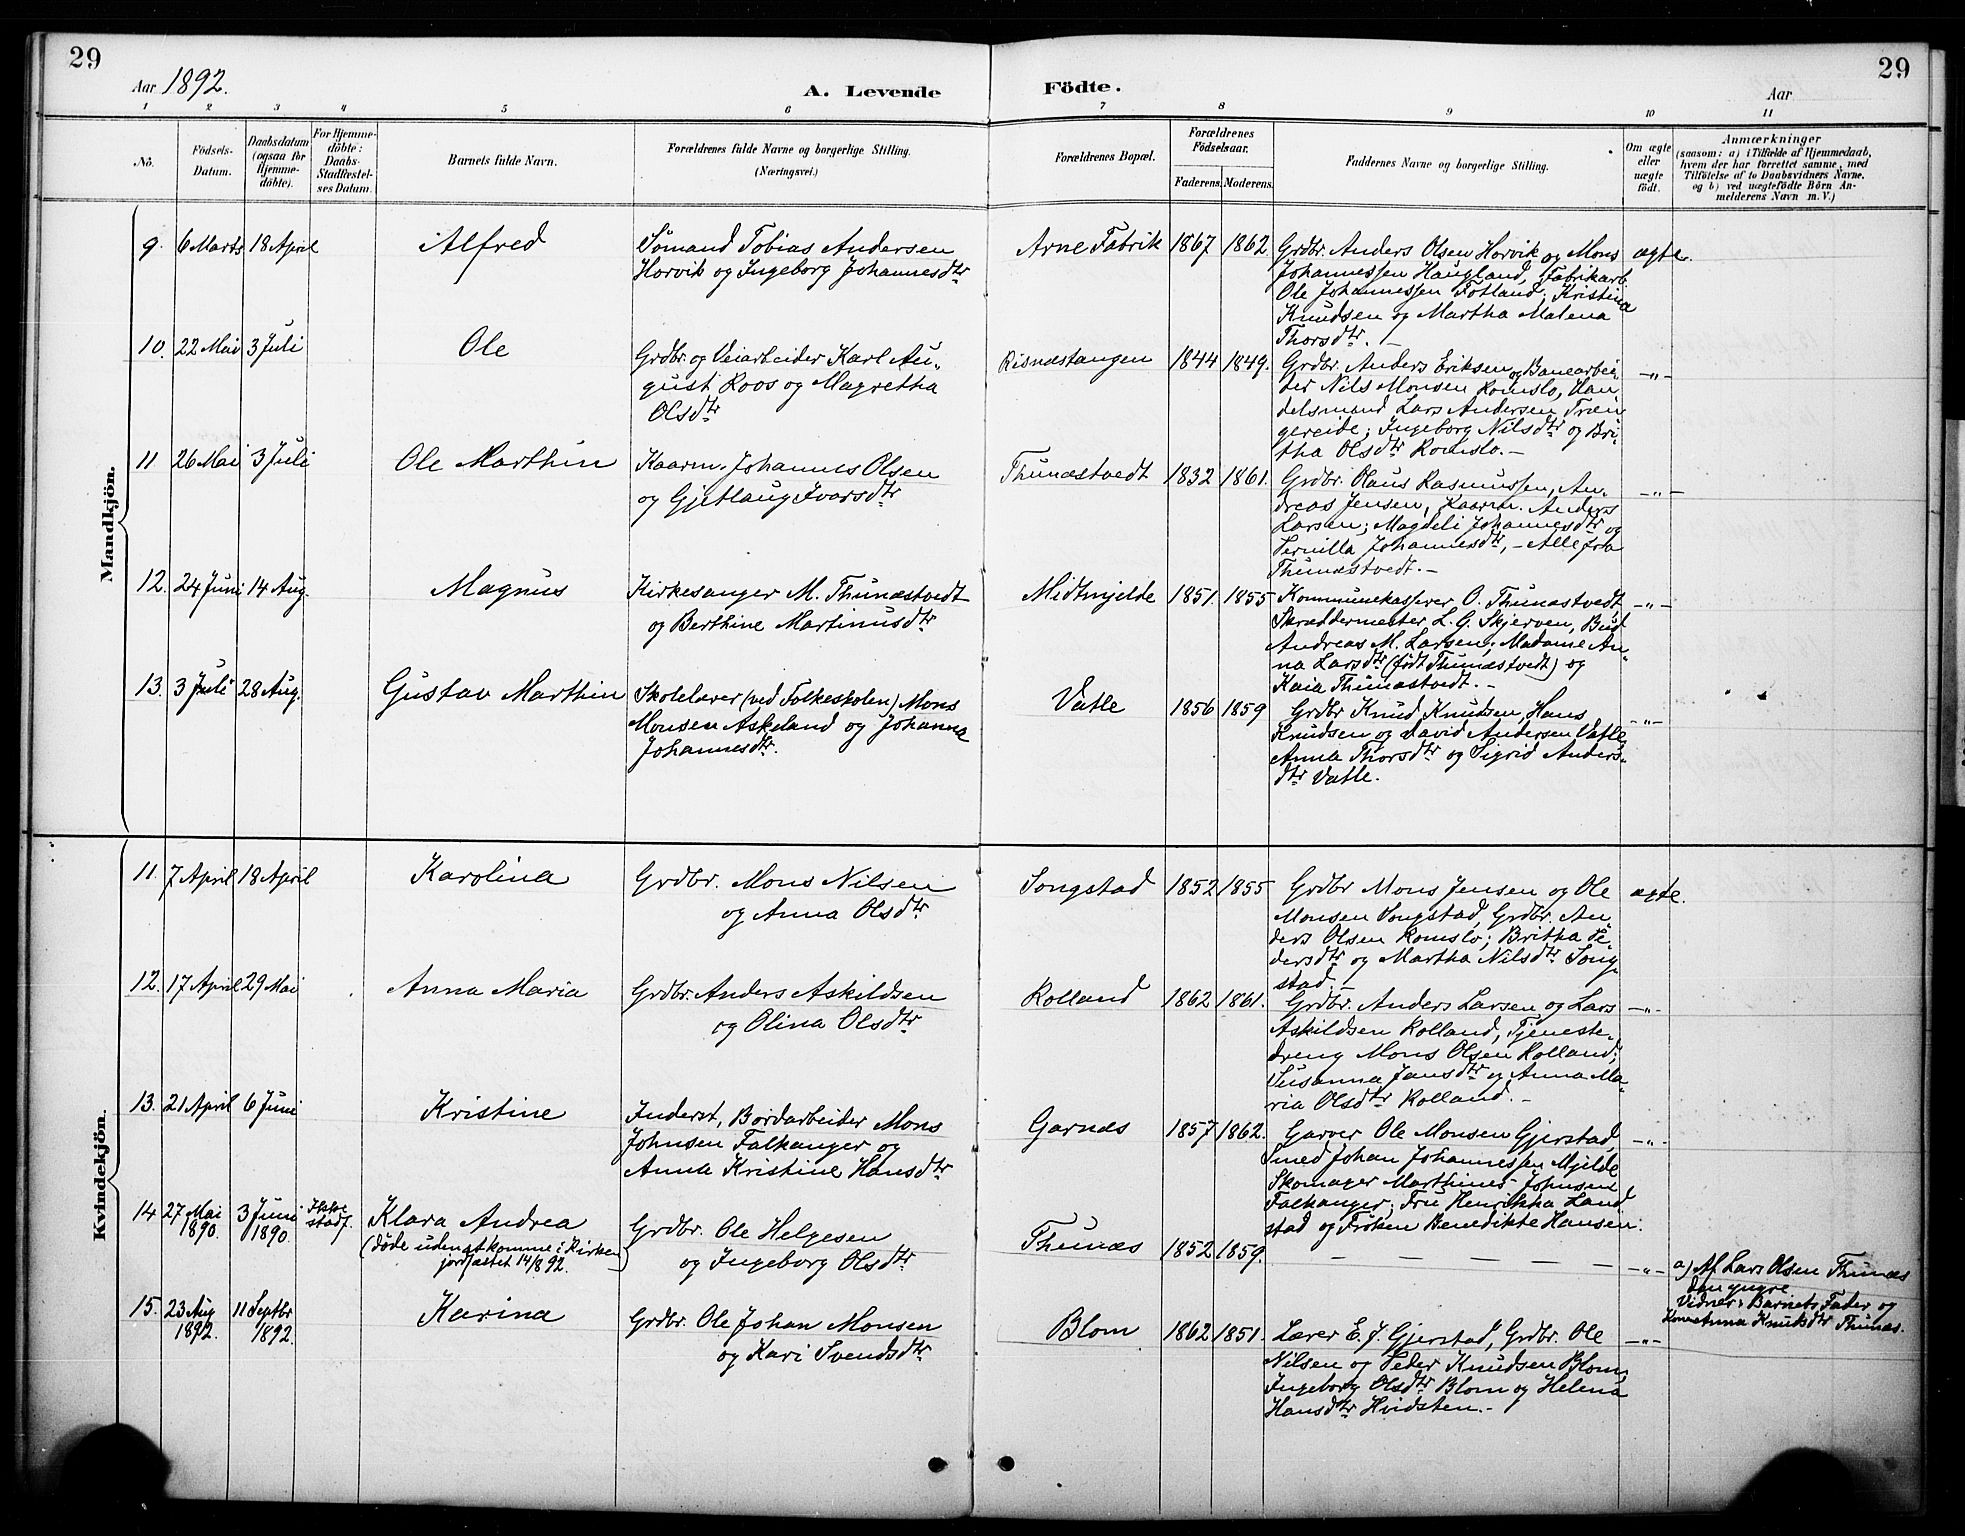 29
29
Aar 1892.
A. Levende
Födte.
Aar
1 2 3 4 5 6 7 8 9 10 11
No.
Födsels-
Datum.
Daabsdatum
(ogsaa for
Hjemme-
döbte).
For Hjemme-
döbte:
Daabs-
Stadfæstel-
ses Datum.
Barnets fulde Navn.
Forældrenes fulde Navne og borgerlige Stilling.
(Næringsvei.)
Forældrenes Bopæl.
Forældrenes
Födselsaar.
Faderens. Moderens.
Faddernes Navne og borgerlige Stilling.
Om ægte
eller
uægte
født.
Anmærkninger
(saasom: a) i Tilfælde af Hjemmedaab,
hvem der har forrettet samme, med
Tilföielse af to Daabsvidners Navne,
og b) ved uægtefödte Börn An-
melderens Navn m. V.)
Mandkjön.
9. 6 Marts 18 April Alfred
Sømand Tobias Andersen
Horvik og Ingeborg Johannesdtr
Arne Fabrik 1867 1862
Grdbr. Anders Olsen Horvik og Mons
Johannessen Haugland, Fabrikarb.
Ole Johannessen Fotland; Kristina
Knudsen og Martha Malena
Thorsdtr. –
ægte.
10. 22 Mai 3 Juli Ole
Grdbr. og Veiarbeider Karl Au-
gust Roos og Magretha
Olsdtr
Risnæstangen 1844 1849.
Grdbr. Anders Eriksen og Banearbei-
der Nils Monsen Romslo, Han
delsmand Lars Andersen Træn
gereide; Ingeborg Nilsdtr og Bri-
tha Olsdtr Romslo. –
–„–
11. 26 Mai 3 Juli Ole Marthin
Kaarm. Johannes Olsen
og Gjetlaug Ivarsdtr
Thunæstvedt 1832 1861.
Grdbr. Olaus Rasmussen, An-
dreas Jensen, Kaarm. Anders
Larsen; Magdeli Johannesdtr og
Pernilla Johannesdtr, – Alle fra
Thunæstvedt. –
–„–
12. 24 Juni 14 Aug. Magnus
Kirkesanger M. Thunæstvedt
og Berthine Martinusdtr
Midtmjelde 1851. 1855
Kommunekasserer O. Thunæstvedt,
Skræddermester L. G. Skjerven, Bud
Andreas M. Larsen; Madame An-
na Larsdtr (født Thunæstvedt) og
Kaia Thunæstvedt. –
–„–
13. 3 Juli 28 Aug. Gustav Marthin
Skolelærer (ved Folkeskolen) Mons
Monsen Askeland og Johanna
Johannesdtr.
Vatle 1856 1859
Grdbr Knud Knudsen, Hans
Knudsen og David Andersen Vatle,
Anna Thorsdtr og Sigrid Anders-
dtr Vatle.
–„–
Kvindekjön.
11. 7 April 18 April Karolina
Grdbr. Mons Nilsen
og Anna Olsdtr
Songstad 1852 1855
Grdbr Mons Jensen og Ole
Monsen Songstad, Grdbr. An-
ders Olsen Romslo; Britha Pe-
dersdtr og Martha Nilsdtr Song-
stad. –
ægte.
12. 17 April 29 Mai Anna Maria
Grdbr. Anders Askildsen
og Olina Olsdtr
Rolland 1862 1861.
Grdbr. Anders Larsen og Lars
Askildsen Rolland, Tjeneste-
dreng Mons Olsen Rolland;
Susanna Jansdtr og Anna Ma-
ria Olsdtr Rolland. –
–„–
13. 21 April 6 Juni Kristine
Inderst, Bordarbeider Mons
Johnsen Falkanger og
Anna Kristine Hansdtr
Garnæs 1857 1862.
Garver Ole Monsen Gjerstad,
Smed Johan Johannessen Mjelde
Skomager Marthines Johnsen
Falkanger; Fru Henrikka Land
stad og Frøken Benedikte Hansen.
–„–
14. 27 Mai 1890. 3 Juni 1890. Klara Andrea
(døde uden at komme i Kirken
jordfæstet 14/8 92.)
Grdbr. Ole Helgesen
og Ingeborg Olsdtr
Thunæs 1852 1859.
– – – – –
–„–
a) Af Lars Olsen Thunæs
den yngre
Vidner: Barnets Fader og
Kone Anna Knutsdtr Thunæs.
15. 23 Aug 1892. 11 Septbr 1892. Karina
Grdbr. Ole Johan Monsen
og Kari Svendsdtr
Blom 1862 1851.
Lærer E. J. Gjerstad, Grdbr. Ole
Nilsen og Peder Knudsen Blom;
Ingeborg Olsdtr Blom og Helena
Hansdtr Hvidsten. –
–„–